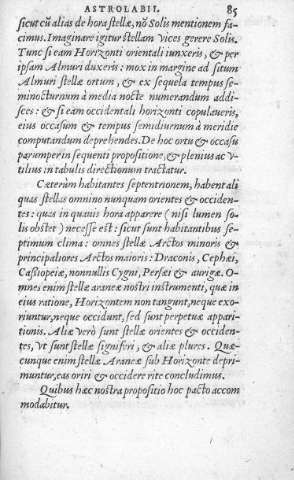 ASTROLABII. 85
sicut cũ alias de hora stellæ, nõ Solis mentionem fa-
cimus. Imaginare igitur stellam vices gerere Solis.
Tunc si eam Horizonti orientali iunxeris, & per
ipsam Almuri duxeris: mox in margine ad situm
Almuri stellæ ortum, & ex sequela tempus se-
minocturnum à media nocte numerandum addis-
ces: & si eam occidentali horizonti copulaueris,
eius occasum & tempus semidiurnum à meridie
computandum deprehendes. De hoc ortu & occasu
parumper in sequenti propositione, & plenius ac v-
tilius in tabulis directionum tractatur.
Cæterùm habitantes septentrionem, habent ali
quas stellas omnino nunquam orientes & occiden-
tes: quas in quauis hora apparere (nisi lumen so-
lis obstet) necesse est: sicut sunt habitantibus se-
ptimum clima: omnes stellæ Arctos minoris &
principaliores Arctos maioris: Draconis, Cephæi,
Cassiopeiæ, nonnullis Cygni, Persæi & aurigæ. O-
mnes enim stellæ araneæ nostri instrumenti, quæ in
eius ratione, Horizontem non tangunt, neque exo-
riuntur, neque occidunt, sed sunt perpetuæ appari-
tionis. Aliæ verò sunt stellæ orientes & occiden-
tes, vt sunt stellæ signiferi, & aliæ plures. Quæ-
cunque enim stellæ Araneæ sub Horizonte depri-
muntur, eas oriri & occidere rite concludimus.
Quibus hæc nostra propositio hoc pacto accom
modabitur.